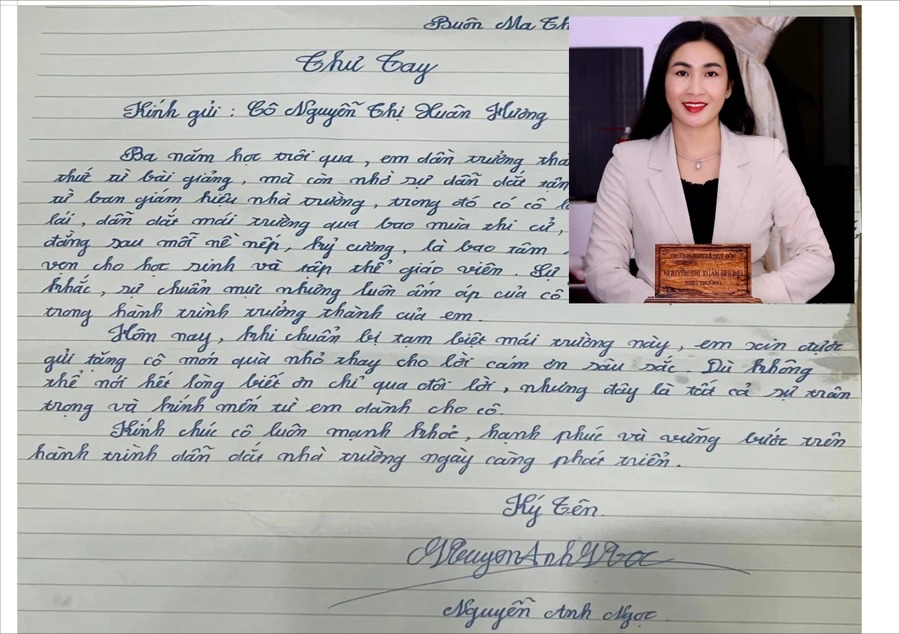 Buôn Ma Th
Thư Tay
Kính gửi : Cô Nguyễn Thị Xuân Hương
Ba năm học trôi qua, em dần trưởng tha
thứ từ bài giảng, mà còn nhờ sự dẫn dắt tận
từ ban giám hiệu nhà trường, trong đó có cô l
lái, dẫn dắt mái trường qua bao mùa thi cử,
đằng sau mỗi nề nếp, kỷ cương, là bao tâm
vọn cho học sinh và tập thể giáo viên. Sự
khắc, sự chuẩn mực nhưng luôn ấm áp của cô
trong hành trình trưởng thành của em.
Hôm nay, khi chuẩn bị tạm biệt mái trường này, em xin được
gửi tặng cô món quà nhỏ thay cho lời cám ơn sâu sắc. Dù không
thể nói hết lòng biết ơn chỉ qua đôi lời, nhưng đây là tất cả sự trân
trọng và kính mến từ em dành cho cô.
Kính chúc cô luôn mạnh khỏe, hạnh phúc và vững bước trên
hành trình dẫn dắt nhà trường ngày càng phát triển.
Ký Tên.
NguyenAnhNgoc
Nguyễn Anh Ngọc